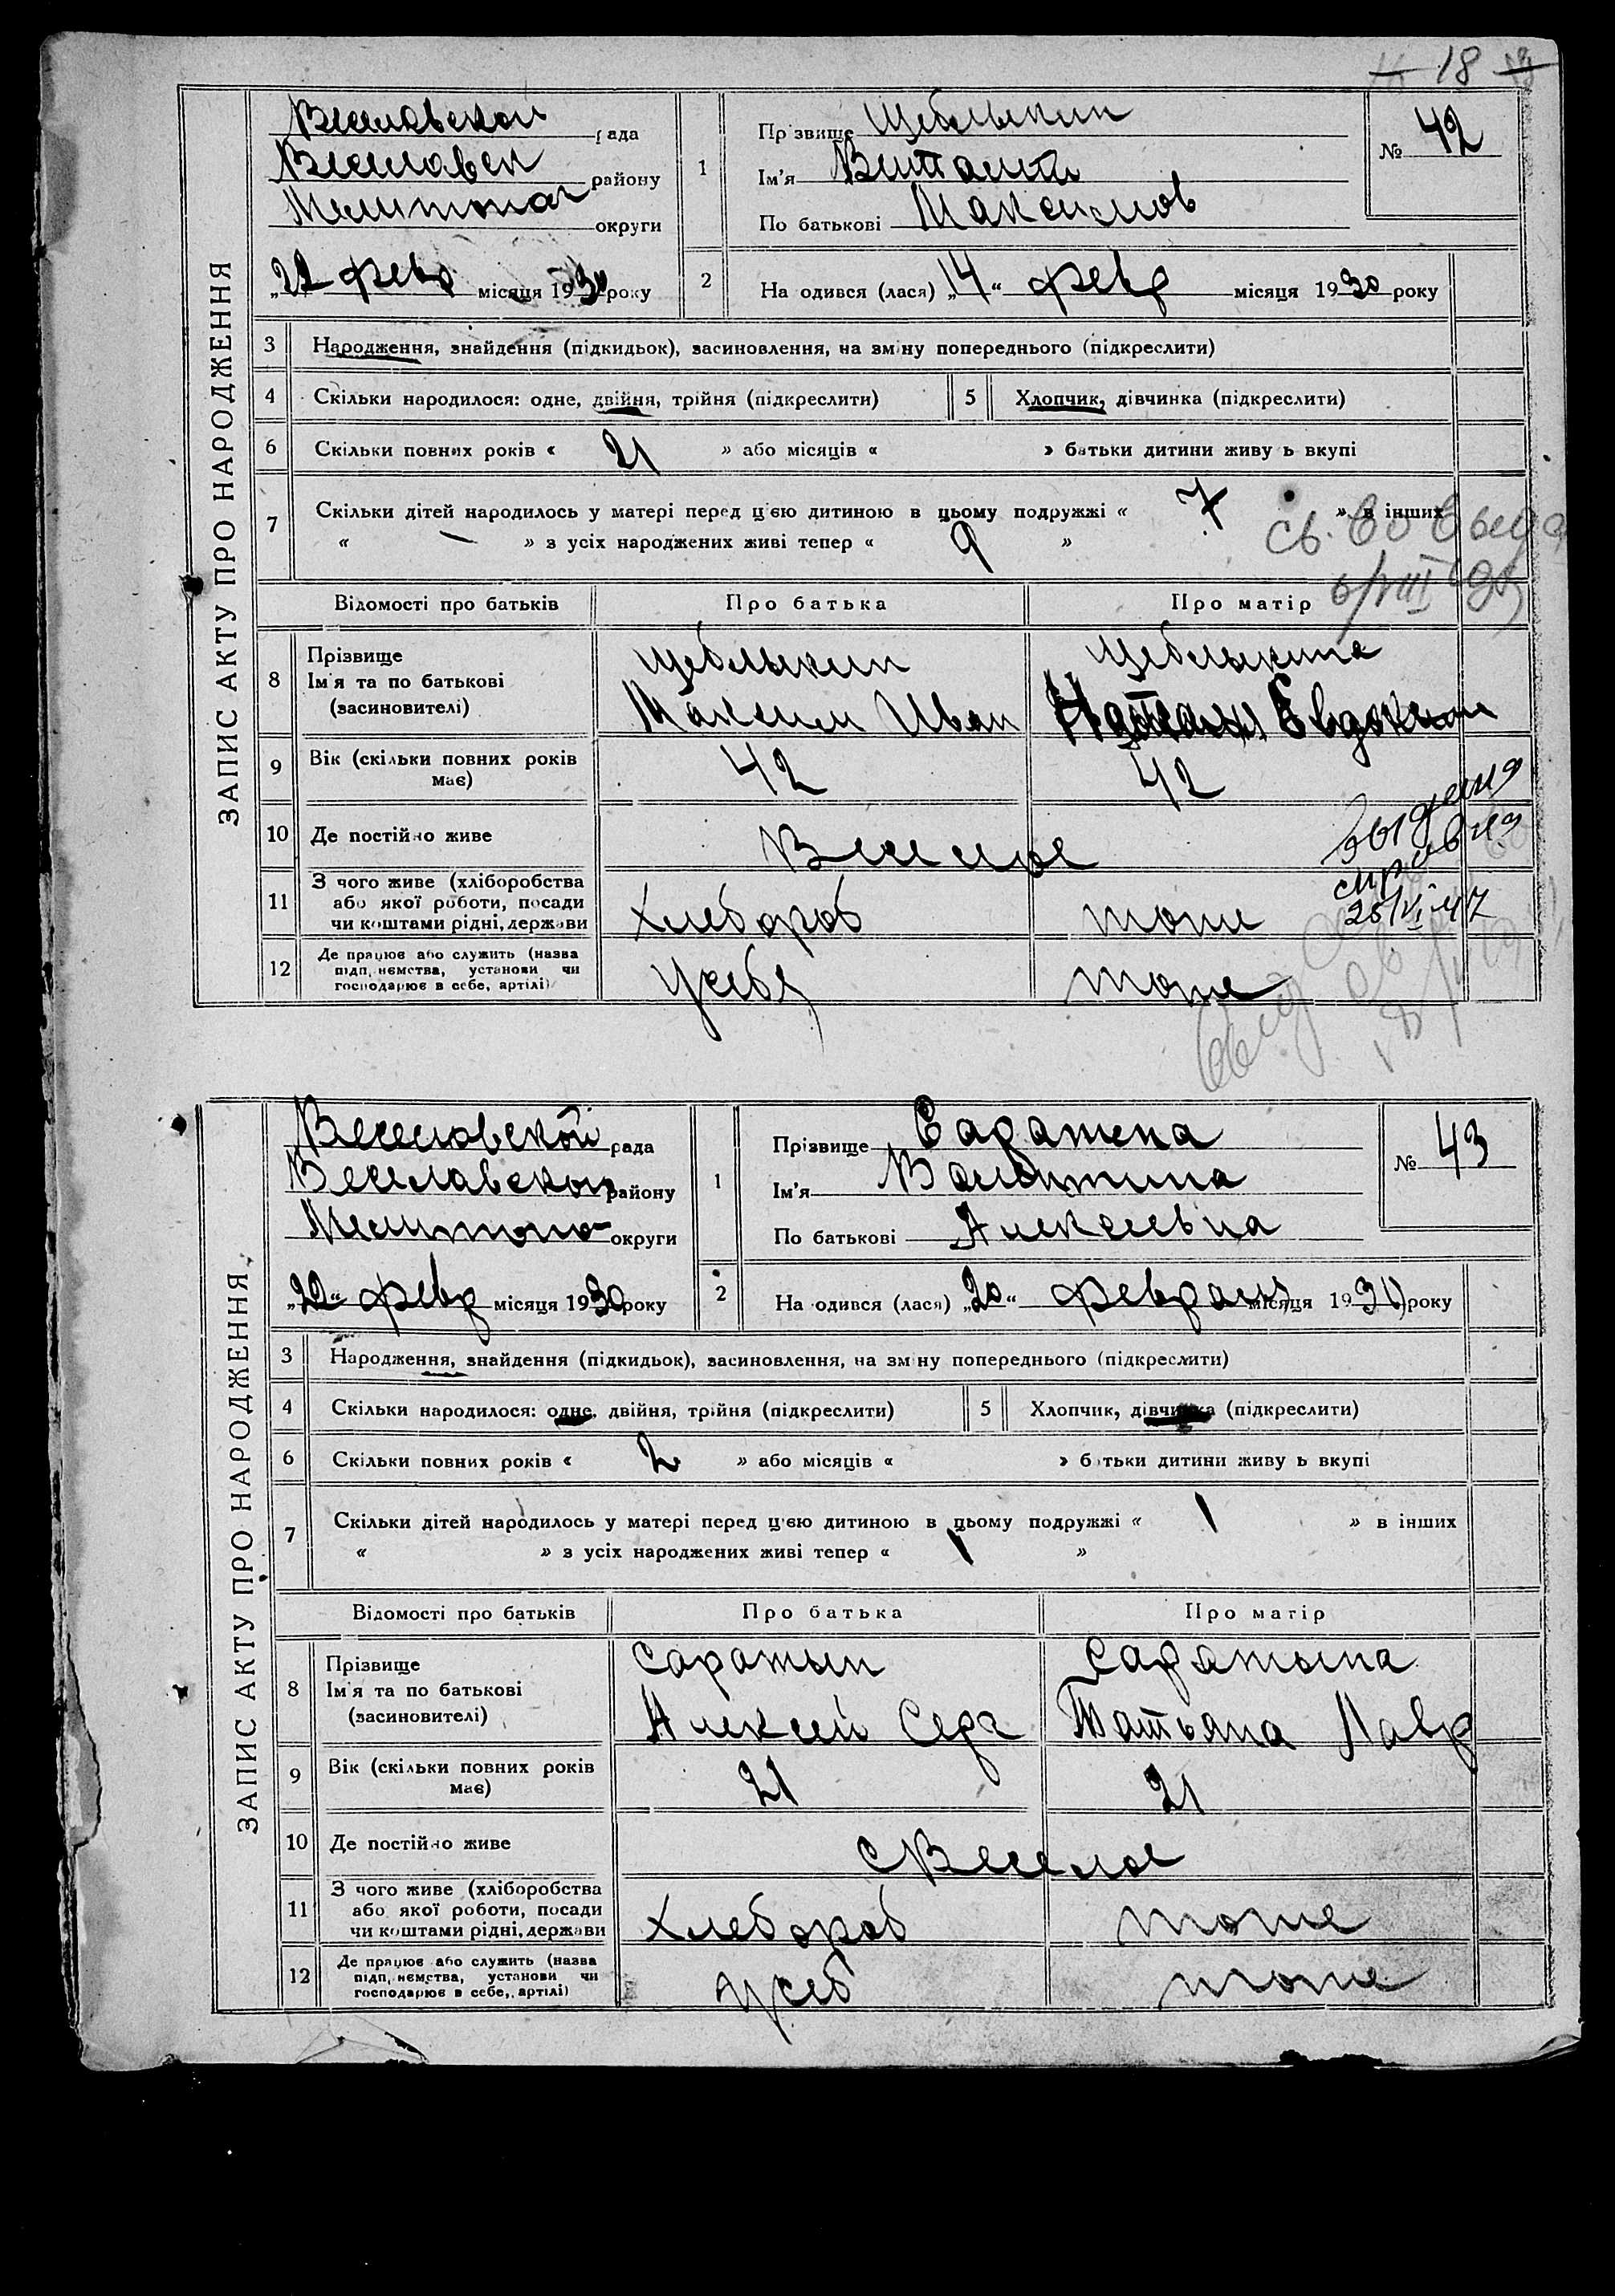 18
ЗАПИС АКТУ ПРО НАРОДЖЕННЯ
Веселовской рада
Веселовск району
Мелитопол округи
„22 февр місяця 1930 року
1
Прізвище Щеблыкин
Ім'я Виталий
По батькові Максимов
№ 42
2
Народився (лася) „14“ февр місяця 1930 року
3 Народження, знайдення (підкидьок), засиновлення, на зміну попереднього (підкреслити)
4 Скільки народилося: одне, двійня, трійня (підкреслити) 5 Хлопчик, дівчинка (підкреслити)
6 Скільки повних років « 21 » або місяців « » батьки дитини живуть вкупі
7 Скільки дітей народилось у матері перед цією дитиною в цьому подружжі « 7 » в інших
« — » з усіх народжених живі тепер « 9 »
Відомості про батьків Про батька Про матір
8 Прізвище Щеблыкин Щеблыкина
Ім'я та по батькові
(засиновителі) Максим Иван Евдоким
9 Вік (скільки повних років має) 42 42
10 Де постійно живе Веселое
11 З чого живе (хліборобства
або якої роботи, посади
чи коштами рідні, держави Хлебороб тоже
25/VI-47
12 Де працює або служить (назва
підприємства, установи чи
господарює в себе, артілі) у себя тоже
ЗАПИС АКТУ ПРО НАРОДЖЕННЯ
Веселовской рада
Веселавской району
Мелитопо округи
„22“ февр місяця 1930 року
1
Прізвище
Ім'я Валентина
По батькові Алексеевна
№ 43
2
Народився (лася) „20“ февраля місяця 1930 року
3 Народження, знайдення (підкидьок), засиновлення, на зміну попереднього (підкреслити)
4 Скільки народилося: одне, двійня, трійня (підкреслити) 5 Хлопчик, дівчинка (підкреслити)
6 Скільки повних років « 2 » або місяців « » батьки дитини живуть вкупі
7 Скільки дітей народилось у матері перед цією дитиною в цьому подружжі « 1 » в інших
« » з усіх народжених живі тепер « 1 »
Відомості про батьків Про батька Про матір
8 Прізвище
Ім'я та по батькові
(засиновителі) Алексей Серг Татьяна Лавр
9 Вік (скільки повних років має) 21 21
10 Де постійно живе с Веселое
11 З чого живе (хліборобства
або якої роботи, посади
чи коштами рідні, держави Хлебороб тоже
12 Де працює або служить (назва
підприємства, установи чи
господарює в себе, артілі) у себ тоже